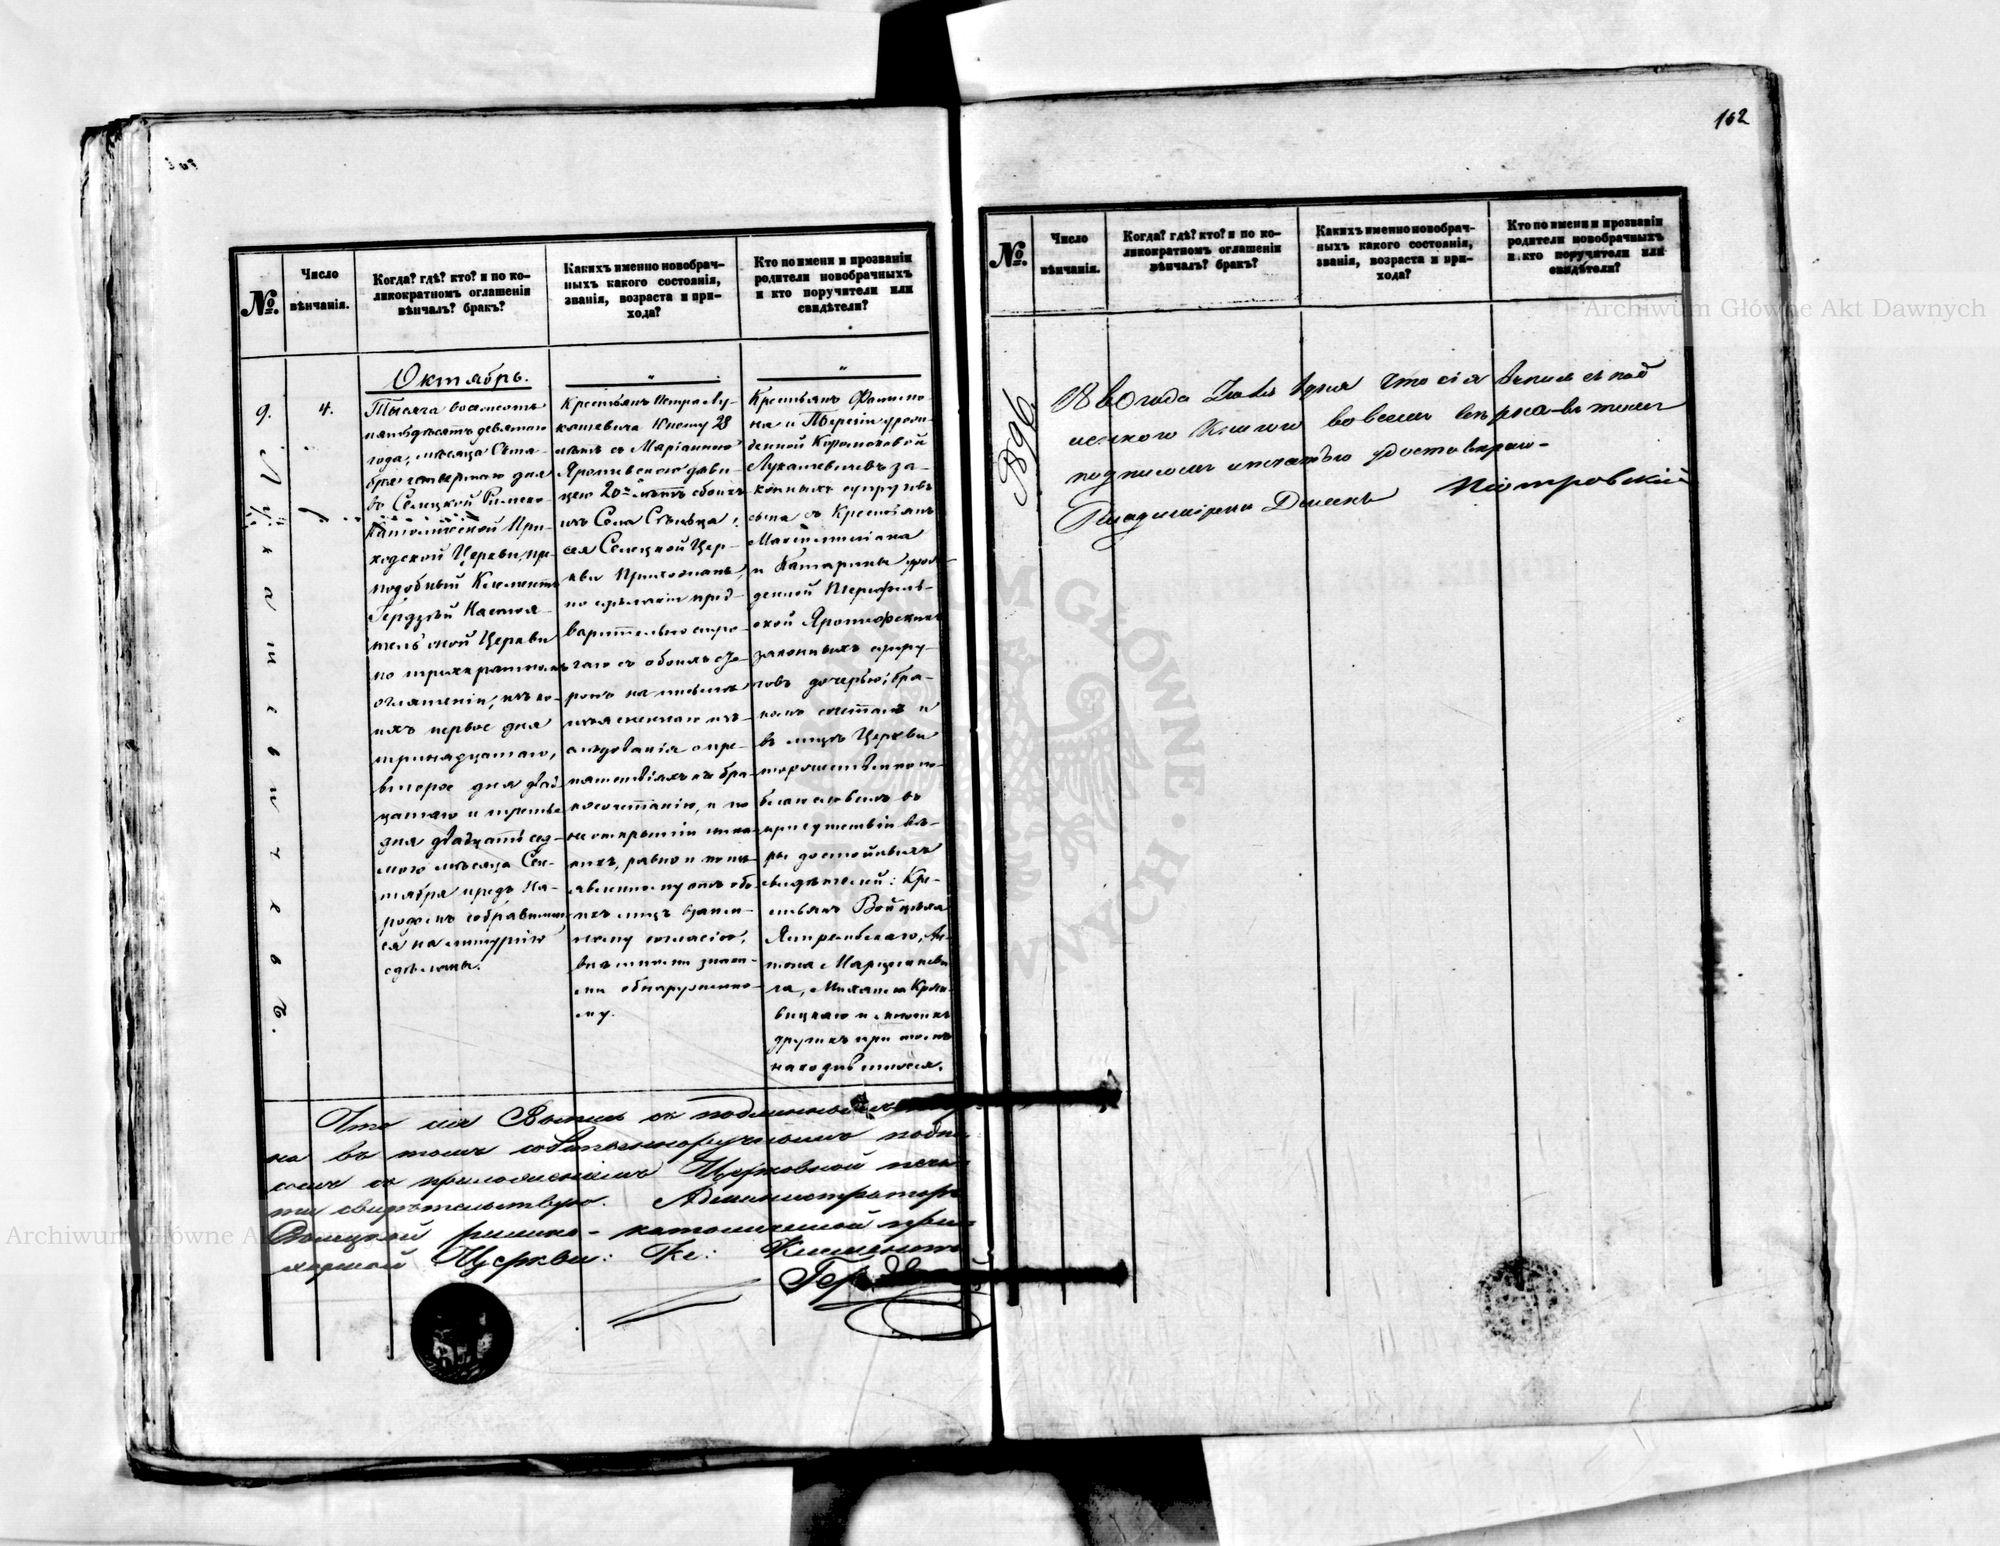 162
№.
Число
вѣнчанія.
Когда? гдѣ? кто? и по ко-
ликократномъ оглашеніи
вѣнчалъ? бракъ?
Какихъ именно новобрач-
ныхъ какого состоянія,
званія, возраста и при-
хода?
Кто по имени и прозваніи
родители новобрачныхъ
и кто поручители или
свидѣтели?
9.
4.
Лукашевичевъ.
Октябрь.
Тысяча восемсотъ
пятьдесятъ девятаго
года, мѣсяца Октя-
бря четвертаго дня
въ Селецкой Римско-
Католической При-
ходской Церкви, пре-
подобный Климентъ
Гердзѣй Настоя-
тель оной Церкви
по трикратномъ
оглашеніи, изъ ко-
ихъ первое дня
тринадцатаго,
второе дня двад-
цатаго и третье
дня двадцать седь-
мого мѣсяца Сен-
тября предъ На-
родомъ собравшим-
ся на литургію
сдѣланы.
"
Крестьянъ Петра Лу-
кашевича Юношу 28
лѣтъ съ Маріанною
Яротевскою дѣви-
цею 20ти лѣтъ обоихъ
изъ Села Сѣльца,
ся Селецкой Цер-
кви Прихожанъ,
по сдѣланіи пред-
варительно стро-
гаго съ обоихъ сто-
ронъ на письмѣ
изъясненнаго изъ-
слѣдованія о пре-
пятствіяхъ къ бра-
косочетанію, и по
неоткрытіи ника-
кихъ, равно и по изъ-
явленному отъ обо-
ихъ лицъ взаим-
ному согласію,
внѣшними знака-
ми обнаруженно-
му.
"
Крестьянъ
на и Терезіи урож-
денной
Лукашевичевъ за-
конныхъ супруговъ
сына съ Крестьянъ
Максимиліана
и Катарины урож-
денной
ской
законныхъ супру-
говъ дочерью, бра-
комъ сочеталъ и
въ лицѣ Церкви
торжественно по-
благословилъ въ
присутствіи вѣ-
ры достойныхъ
свидѣтелей: Кре-
стьянъ Войцѣха
Ястрембскаго, Ан-
тона Марцинкеви-
ча, Михаила Кра-
вицкаго и многихъ
другихъ при томъ
находившихся.
Что сія Выпись съ подлинною
на въ томъ собственноручнымъ подпи-
сомъ съ приложеніемъ Церковной печа-
ти свидѣтельствую. Администраторъ
Селецкой римско-католической при-
ходской Церкви: Кс: Климентъ
Гердзѣй
№.
Число
вѣнчанія.
Когда? гдѣ? кто? и по ко-
ликократномъ оглашеніи
вѣнчалъ? бракъ?
Какихъ именно новобрач-
ныхъ какого состоянія,
званія, возраста и при-
хода?
Кто по имени и прозваніи
родители новобрачныхъ
и кто поручители или
свидѣтели?
№96
1860 года дня Что сія Выпись съ под
во всемъ вѣрна въ томъ
подписомъ и печатью удостовѣряю-
Деканъ Піотровскій
Archiwum Główne Akt Dawnych
Archiwum Główne Akt